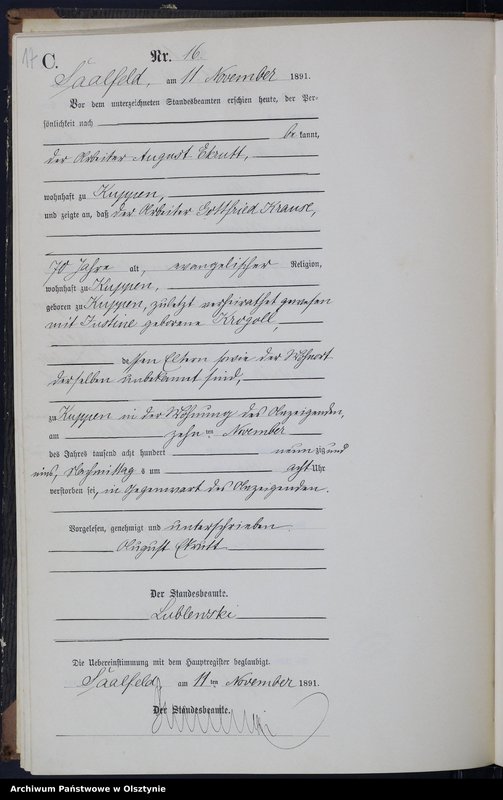 17 C. Nr. 16.
Saalfeld, am 11 November 1891.
Vor dem unterzeichneten Standesbeamten erschien heute, der Per-
sönlichkeit nach
be kannt,
der Arbeiter August Ekrutt,
wohnhaft zu Kuppen,
und zeigte an, daß der Arbeiter Gottfried Krause,
70 Jahre alt, evangelischer Religion,
wohnhaft zu Kuppen,
geboren zu Kuppen, zuletzt verheirathet gewesen
mit Justine geborene Krogoll,
dessen Eltern sowie der Wohnort
derselben unbekannt sind,
zu Kuppen in der Wohnung des Anzeigenden,
am zehn ten November
des Jahres tausend acht hundert neunzig und
eins, Nachmittags um acht Uhr
verstorben sei, in Gegenwart des Anzeigenden.
Vorgelesen, genehmigt und unterschrieben.
August Ekrutt
Der Standesbeamte.
Lublewski
Die Uebereinstimmung mit dem Hauptregister beglaubigt.
Saalfeld, am 11 ten November 1891.
Der Standesbeamte.
Archiwum Państwowe w Olsztynie